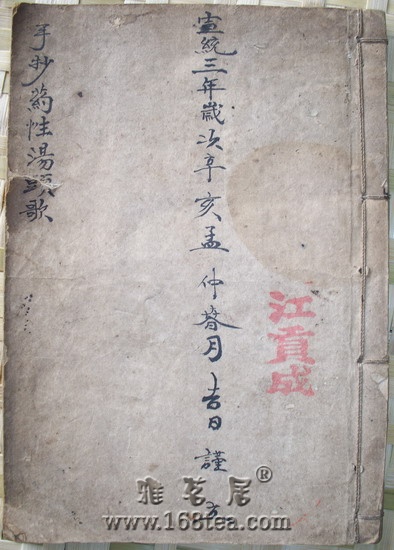 江貢成
宣統三年歲次辛亥孟仲月吉日謹
手抄葯性湯頭歌
雅茗居®
www.168tea.com